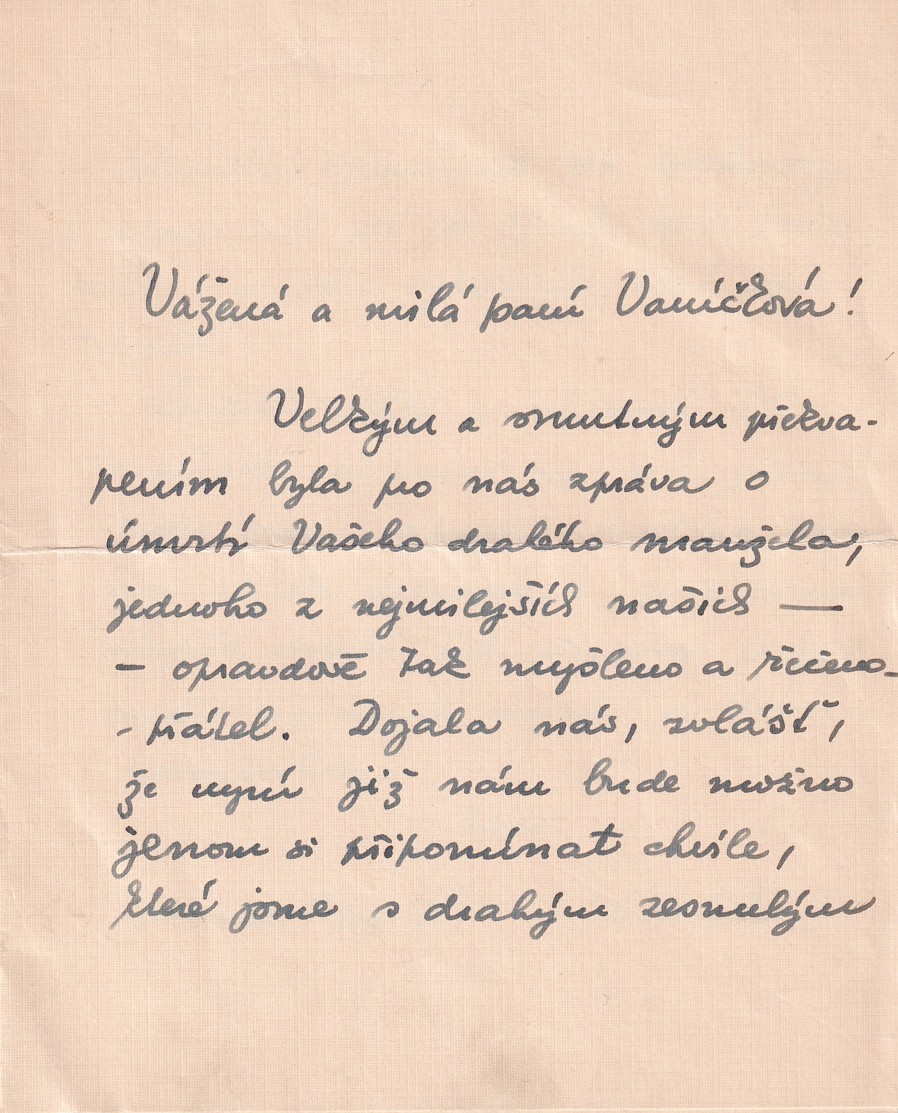 Vážená a milá paní Vaníčková!
Velkým a smutným překva-
pením byla pro nás zpráva o
úmrtí Vašeho drahého manžela,
jednoho z nejmilejších našich —
— opravdově tak myšleno a řečeno —
- přátel. Dojala nás, zvlášť,
že nyní již nám bude možno
jenom si připomínat chvíle,
které jsme s drahým zesnulým